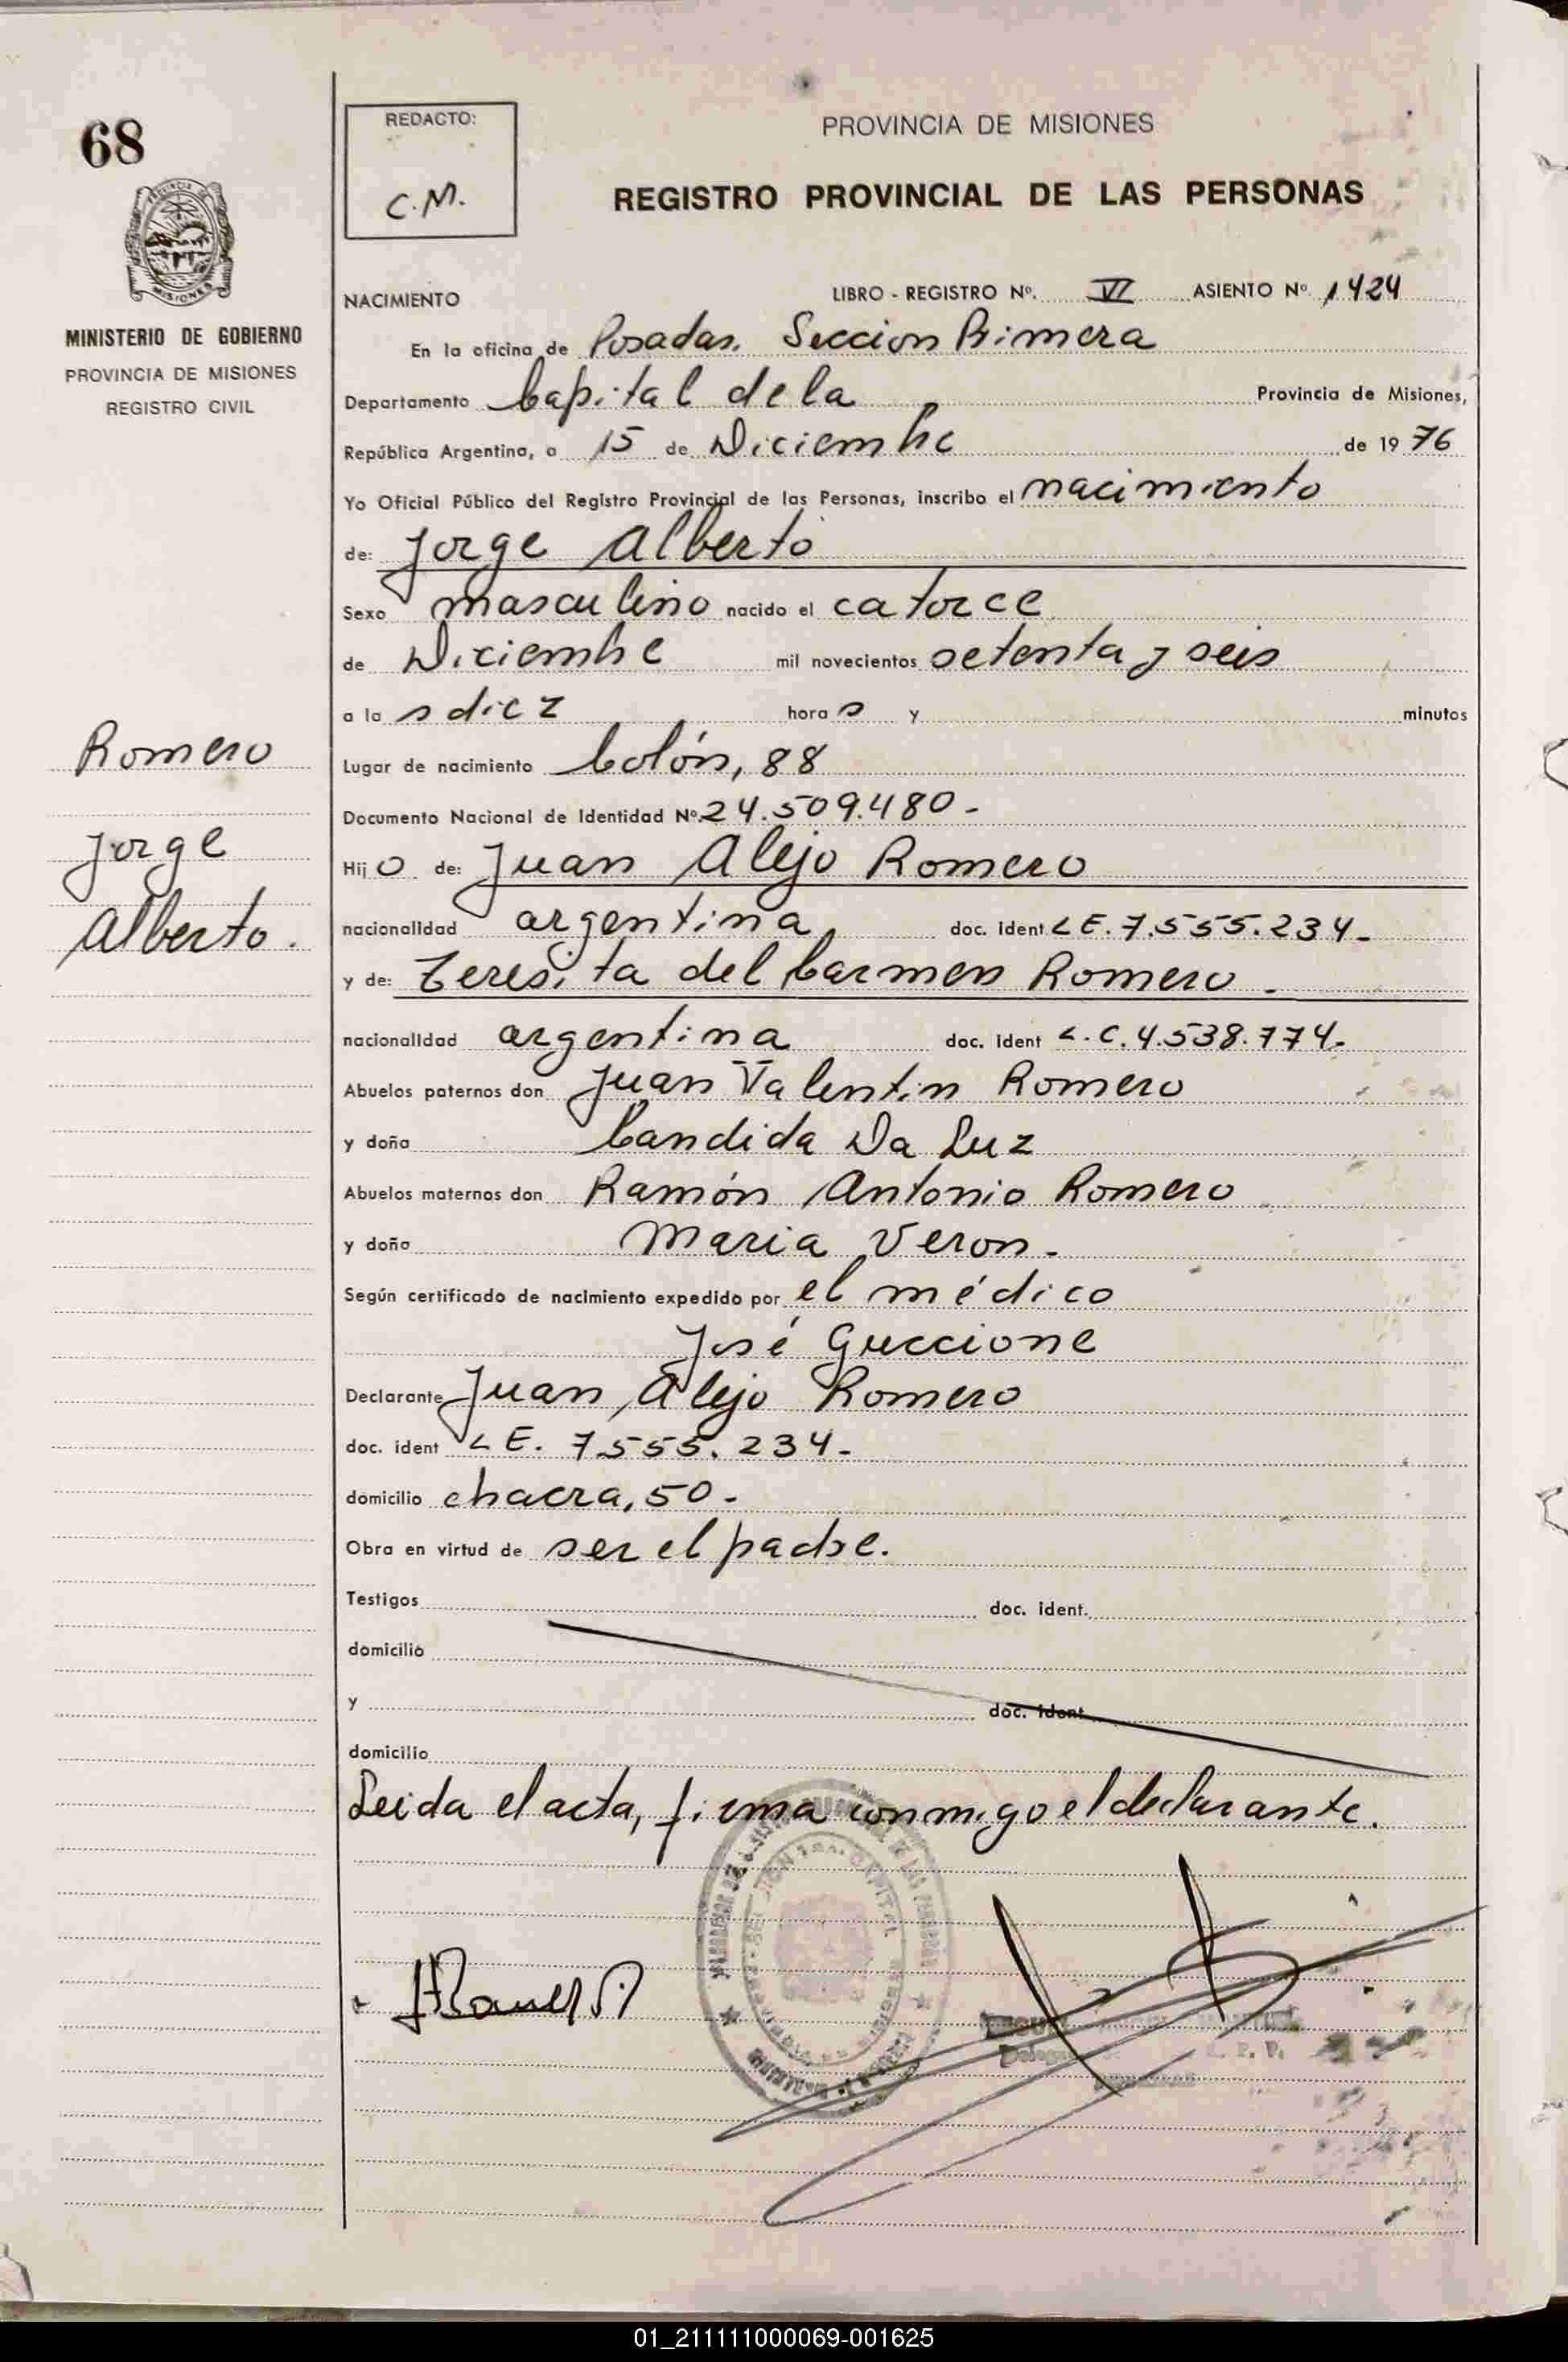 68
REDACTO:
C.M.
PROVINCIA DE MISIONES
REGISTRO PROVINCIAL DE LAS PERSONAS
MISIONES
MINISTERIO DE GOBIERNO
PROVINCIA DE MISIONES
REGISTRO CIVIL
NACIMIENTO LIBRO - REGISTRO Nº. VI ASIENTO Nº. 1424
En la oficina de Posadas. Seccion Primera
Departamento Capital de la Provincia de Misiones,
República Argentina, a 15 de Diciembre de 19 76
Yo Oficial Público del Registro Provincial de las Personas, inscribo el nacimiento
de: Jorge Alberto
Sexo masculino nacido el catorce
de Diciembre mil novecientos setenta y seis
a la s diez hora s y minutos
Lugar de nacimiento Colón, 88
Documento Nacional de Identidad Nº. 24.509.480-
Hij o de: Juan Alejo Romero
nacionalidad argentina doc. ident L E. 7.555.234-
y de: Teresita del Carmen Romero.
nacionalidad argentina doc. ident L.C. 4.538.774-
Abuelos paternos don Juan Valentin Romero
y doña Candida Da Luz
Abuelos maternos don Ramón Antonio Romero
y doña Maria Veron.
Según certificado de nacimiento expedido por el médico
José Guccione
Declarante Juan Alejo Romero
doc. ident L E. 7.555.234-
domicilio chacra, 50-
Obra en virtud de ser el padre.
Testigos doc. ident.
domicilio
y doc. ident
domicilio
Leida el acta, firma conmigo el declarante.
Romero
Jorge
Alberto.
01_211111000069-001625